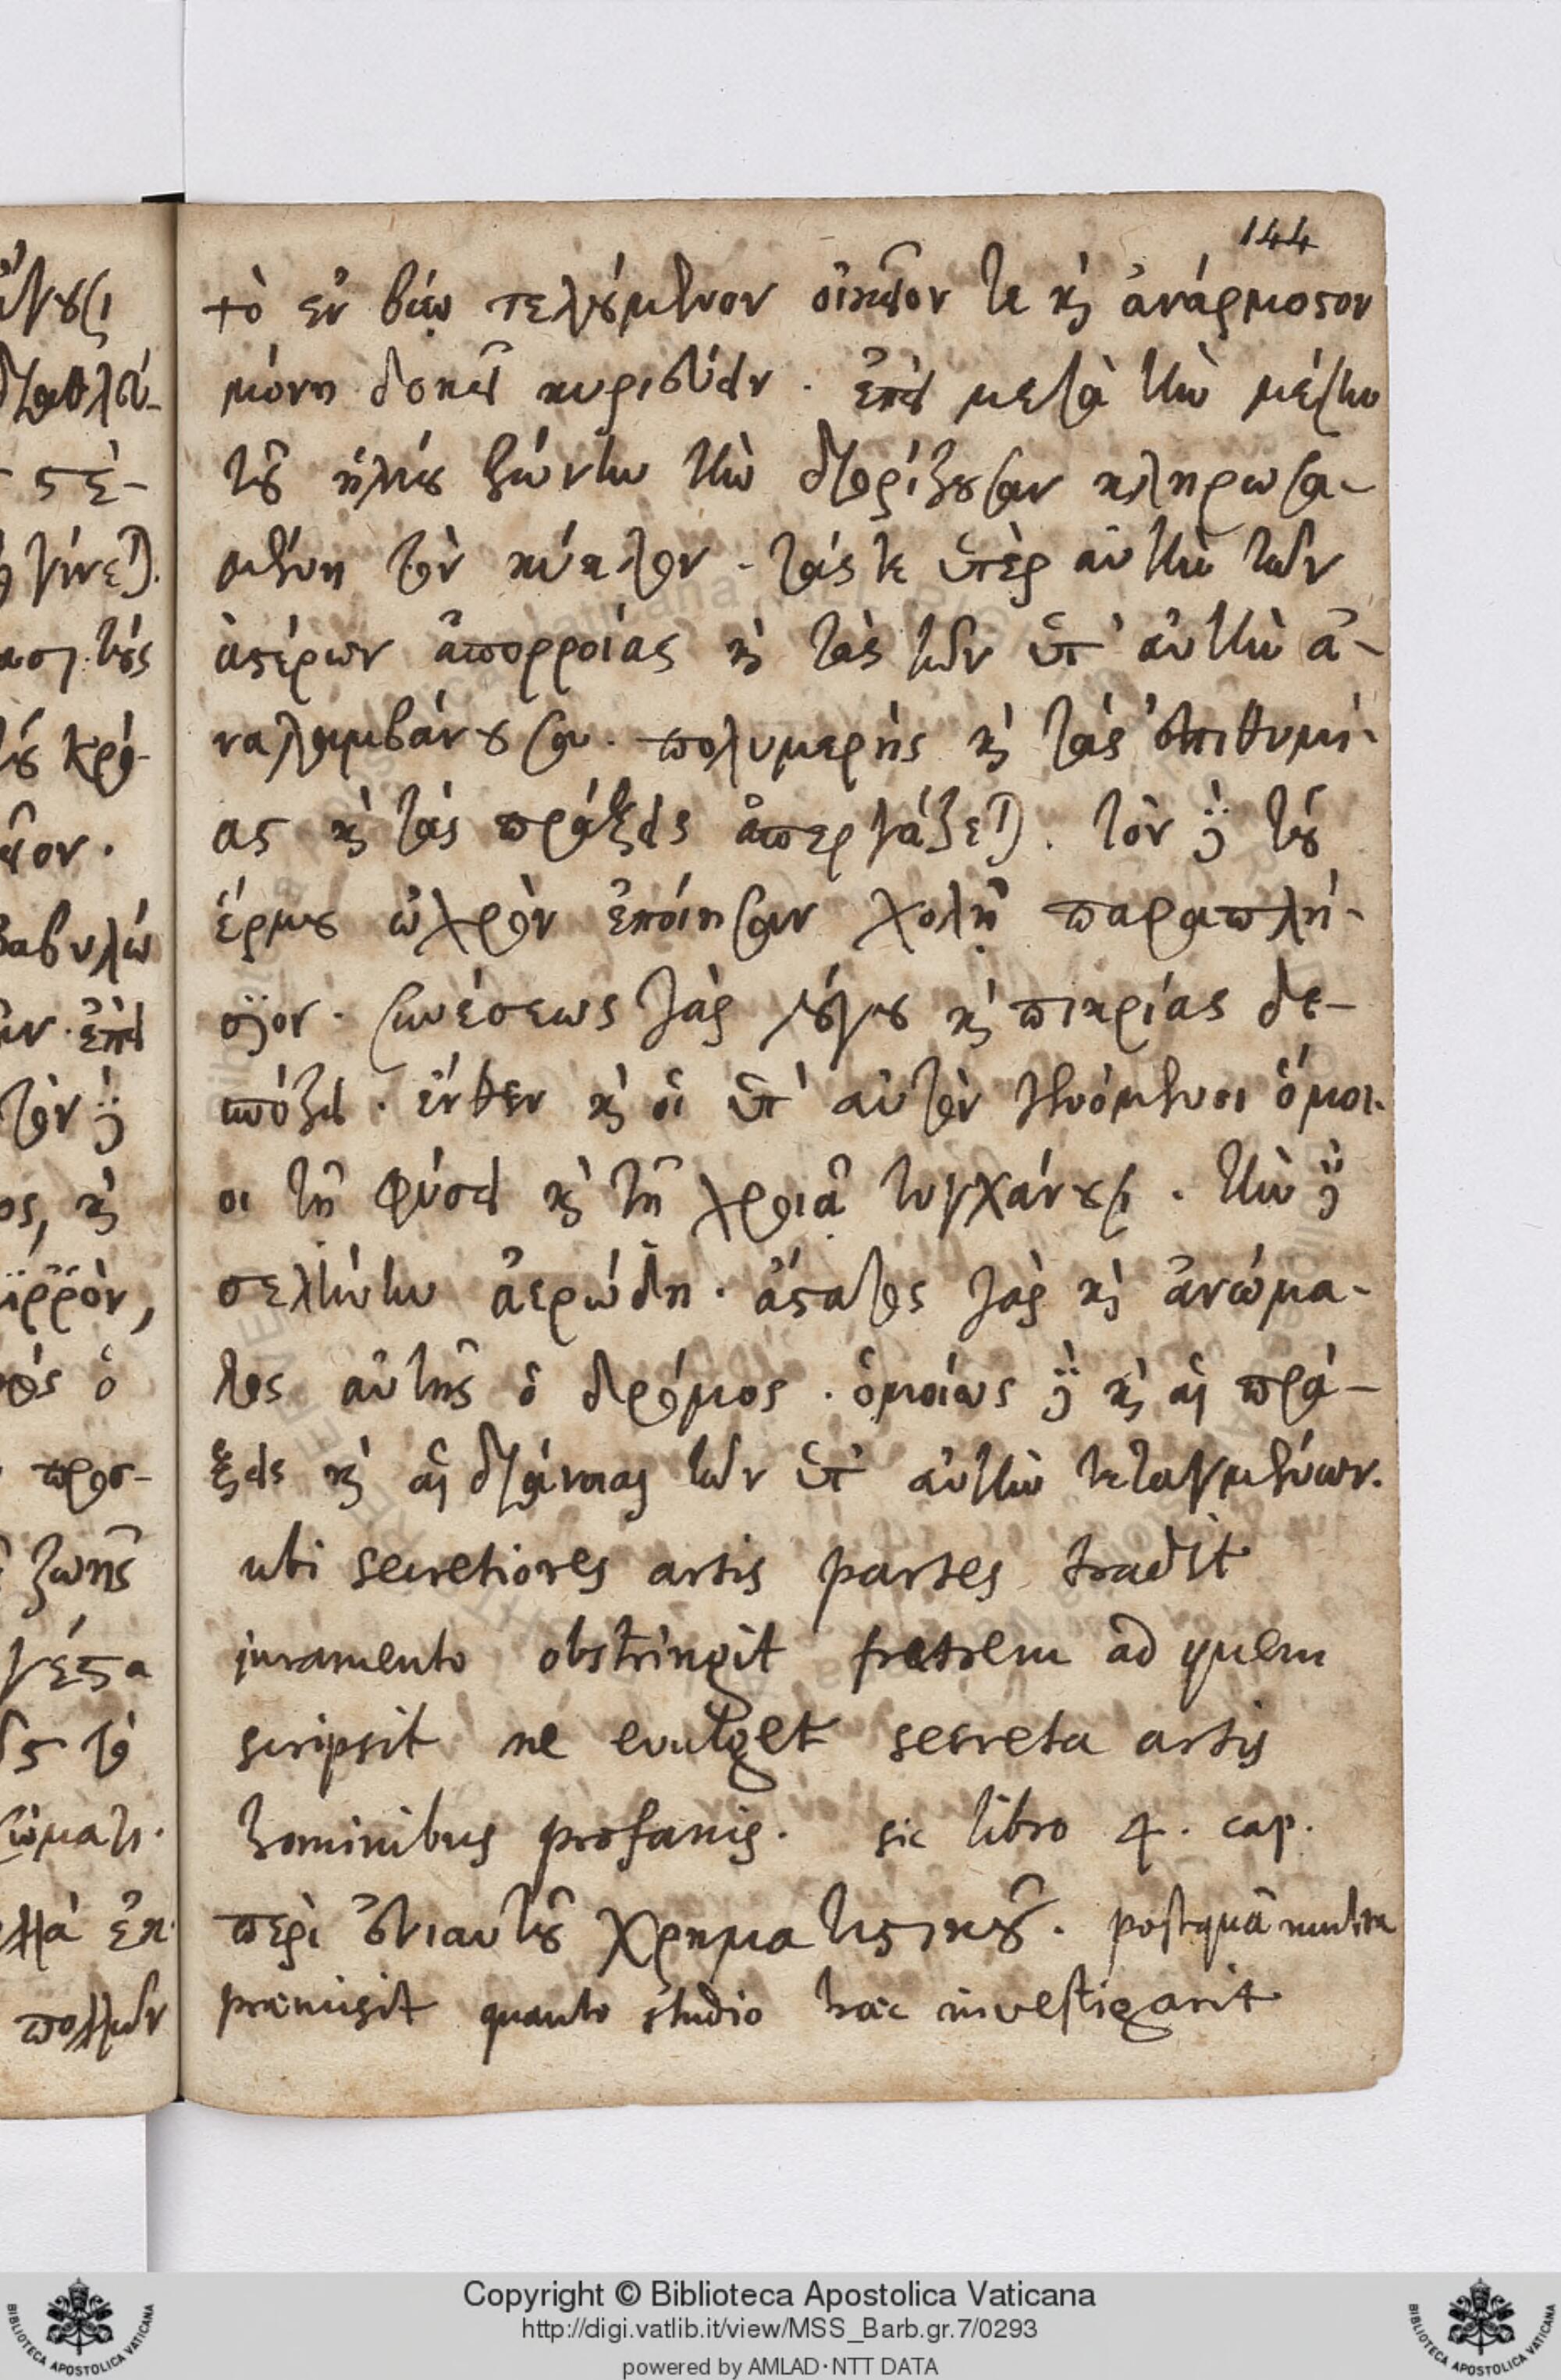 144
τὸ ἐν βίῳ τελούμενον οἰκεῖον τε καὶ ἀνάρμοστον
μόνη δοκεῖ κυριεύειν. ἐπεὶ μετὰ τὴν μέσην
τοῦ ἡλίου ζώνην τὴν διορίζουσαν κληρωσα-
μένη τὸν κύκλον. τάς τε ὑπὲρ αὐτὴν τῶν
ἀστέρων ἀπορροίας καὶ τὰς τῶν ὑπ' αὐτὴν ἀ-
ναλαμβάνουσα. πολυμερὴς καὶ τὰς ἐπιθυμί-
ας καὶ τὰς πράξεις ἀπεργάζεται. τὸν δὲ τοῦ
ἑρμοῦ ὠχρὸν ἐποίησαν χολῇ παραπλή-
σιον. συνέσεως γὰρ λόγου καὶ πικρίας δε-
σπόζει. ἔνθεν καὶ οἱ ὑπ' αὐτὸν γενόμενοι ὅμοι-
οι τῇ φύσει καὶ τῇ χροιᾷ τυγχάνουσι. τὴν δὲ
σελήνην ἀερώδη. ἄστατος γὰρ καὶ ἀνώμα-
λος αὐτῆς ὁ δρόμος. ὁμοίως δὲ καὶ αἱ πρά-
ξεις καὶ αἱ διάνοιαι τῶν ὑπ' αὐτὴν τεταγμένων.
ubi secretiores artis partes tradit
juramento obstringit fratrem ad quem
scripsit ne evulget secreta artis
hominibus profanis. sic libro 4. cap.
περὶ ἐνιαυτοῦ χρηματιστικοῦ. postquā multa
præmisit quanto studio hæc investigarit
Copyright © Biblioteca Apostolica Vaticana
http://digi.vatlib.it/view/MSS_Barb.gr.7/0293
powered by AMLAD·NTT DATA